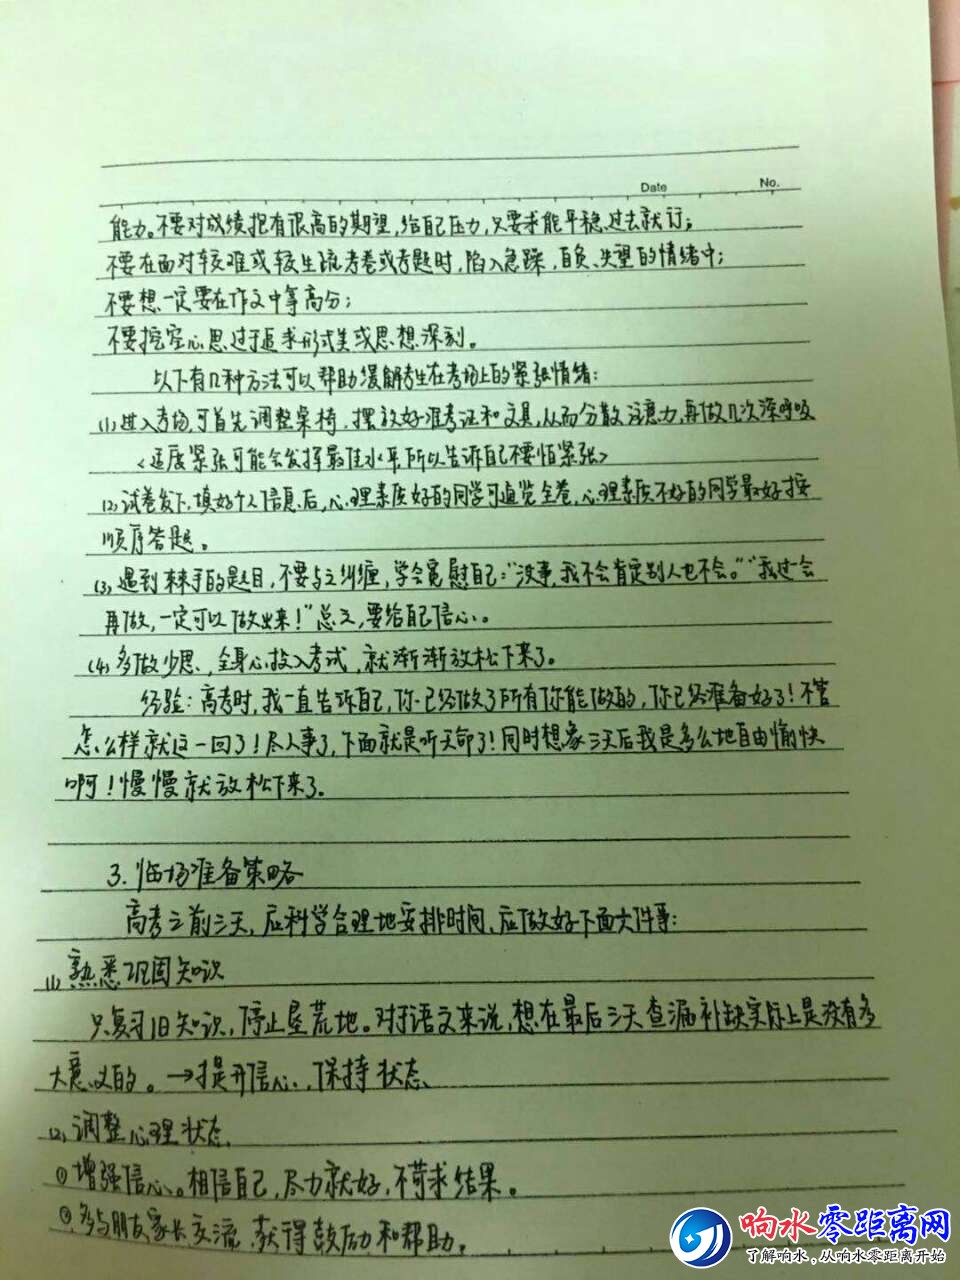 Date No.
能力。不要对成绩抱有很高的期望,给自己压力,只要求能平稳过去就行;
不要在面对较难或较生疏考卷或考题时,陷入急躁,自负、失望的情绪中;
不要想一定要在作文中等高分;
不要挖空心思过于追求形式美或思想深刻。
以下有几种方法可以帮助缓解考生在考场上的紧张情绪:
(1)进入考场,可首先调整桌椅,摆放好准考证和文具,从而分散注意力,再做几次深呼吸
<适度紧张可能会发挥最佳水平,所以告诉自己不要怕紧张>
(2)试卷发下,填好个人信息后,心理素质好的同学可通览全卷,心理素质不好的同学最好按
顺序答题。
(3)遇到棘手的题目,不要与之纠缠,学会宽慰自己:“没事,我不会肯定别人也不会。”“我过一会
再做,一定可以做出来!”总之,要给自己信心。
(4)多做少思、全身心投入考试,就渐渐放松下来了。
经验:高考时,我一直告诉自己,你已经做了所有你能做的,你已经准备好了!不管
怎么样就这一回了!尽人事了,下面就是听天命了!同时想象三天后我是多么地自由愉快
啊!慢慢就放松下来了。
3.临场准备策略
高考之前三天,应科学合理地安排时间,应做好下面六件事:
(1)熟悉巩固知识
只复习旧知识,停止垦荒地。对于语文来说,想在最后三天查漏补缺实际上是没有多
大意义的。→提升信心,保持状态
(2)调整心理状态
①增强信心。相信自己,尽力就好,不苛求结果。
②多与朋友家长交流,获得鼓励和帮助。
响水零距离网
了解响水,从响水零距离开始